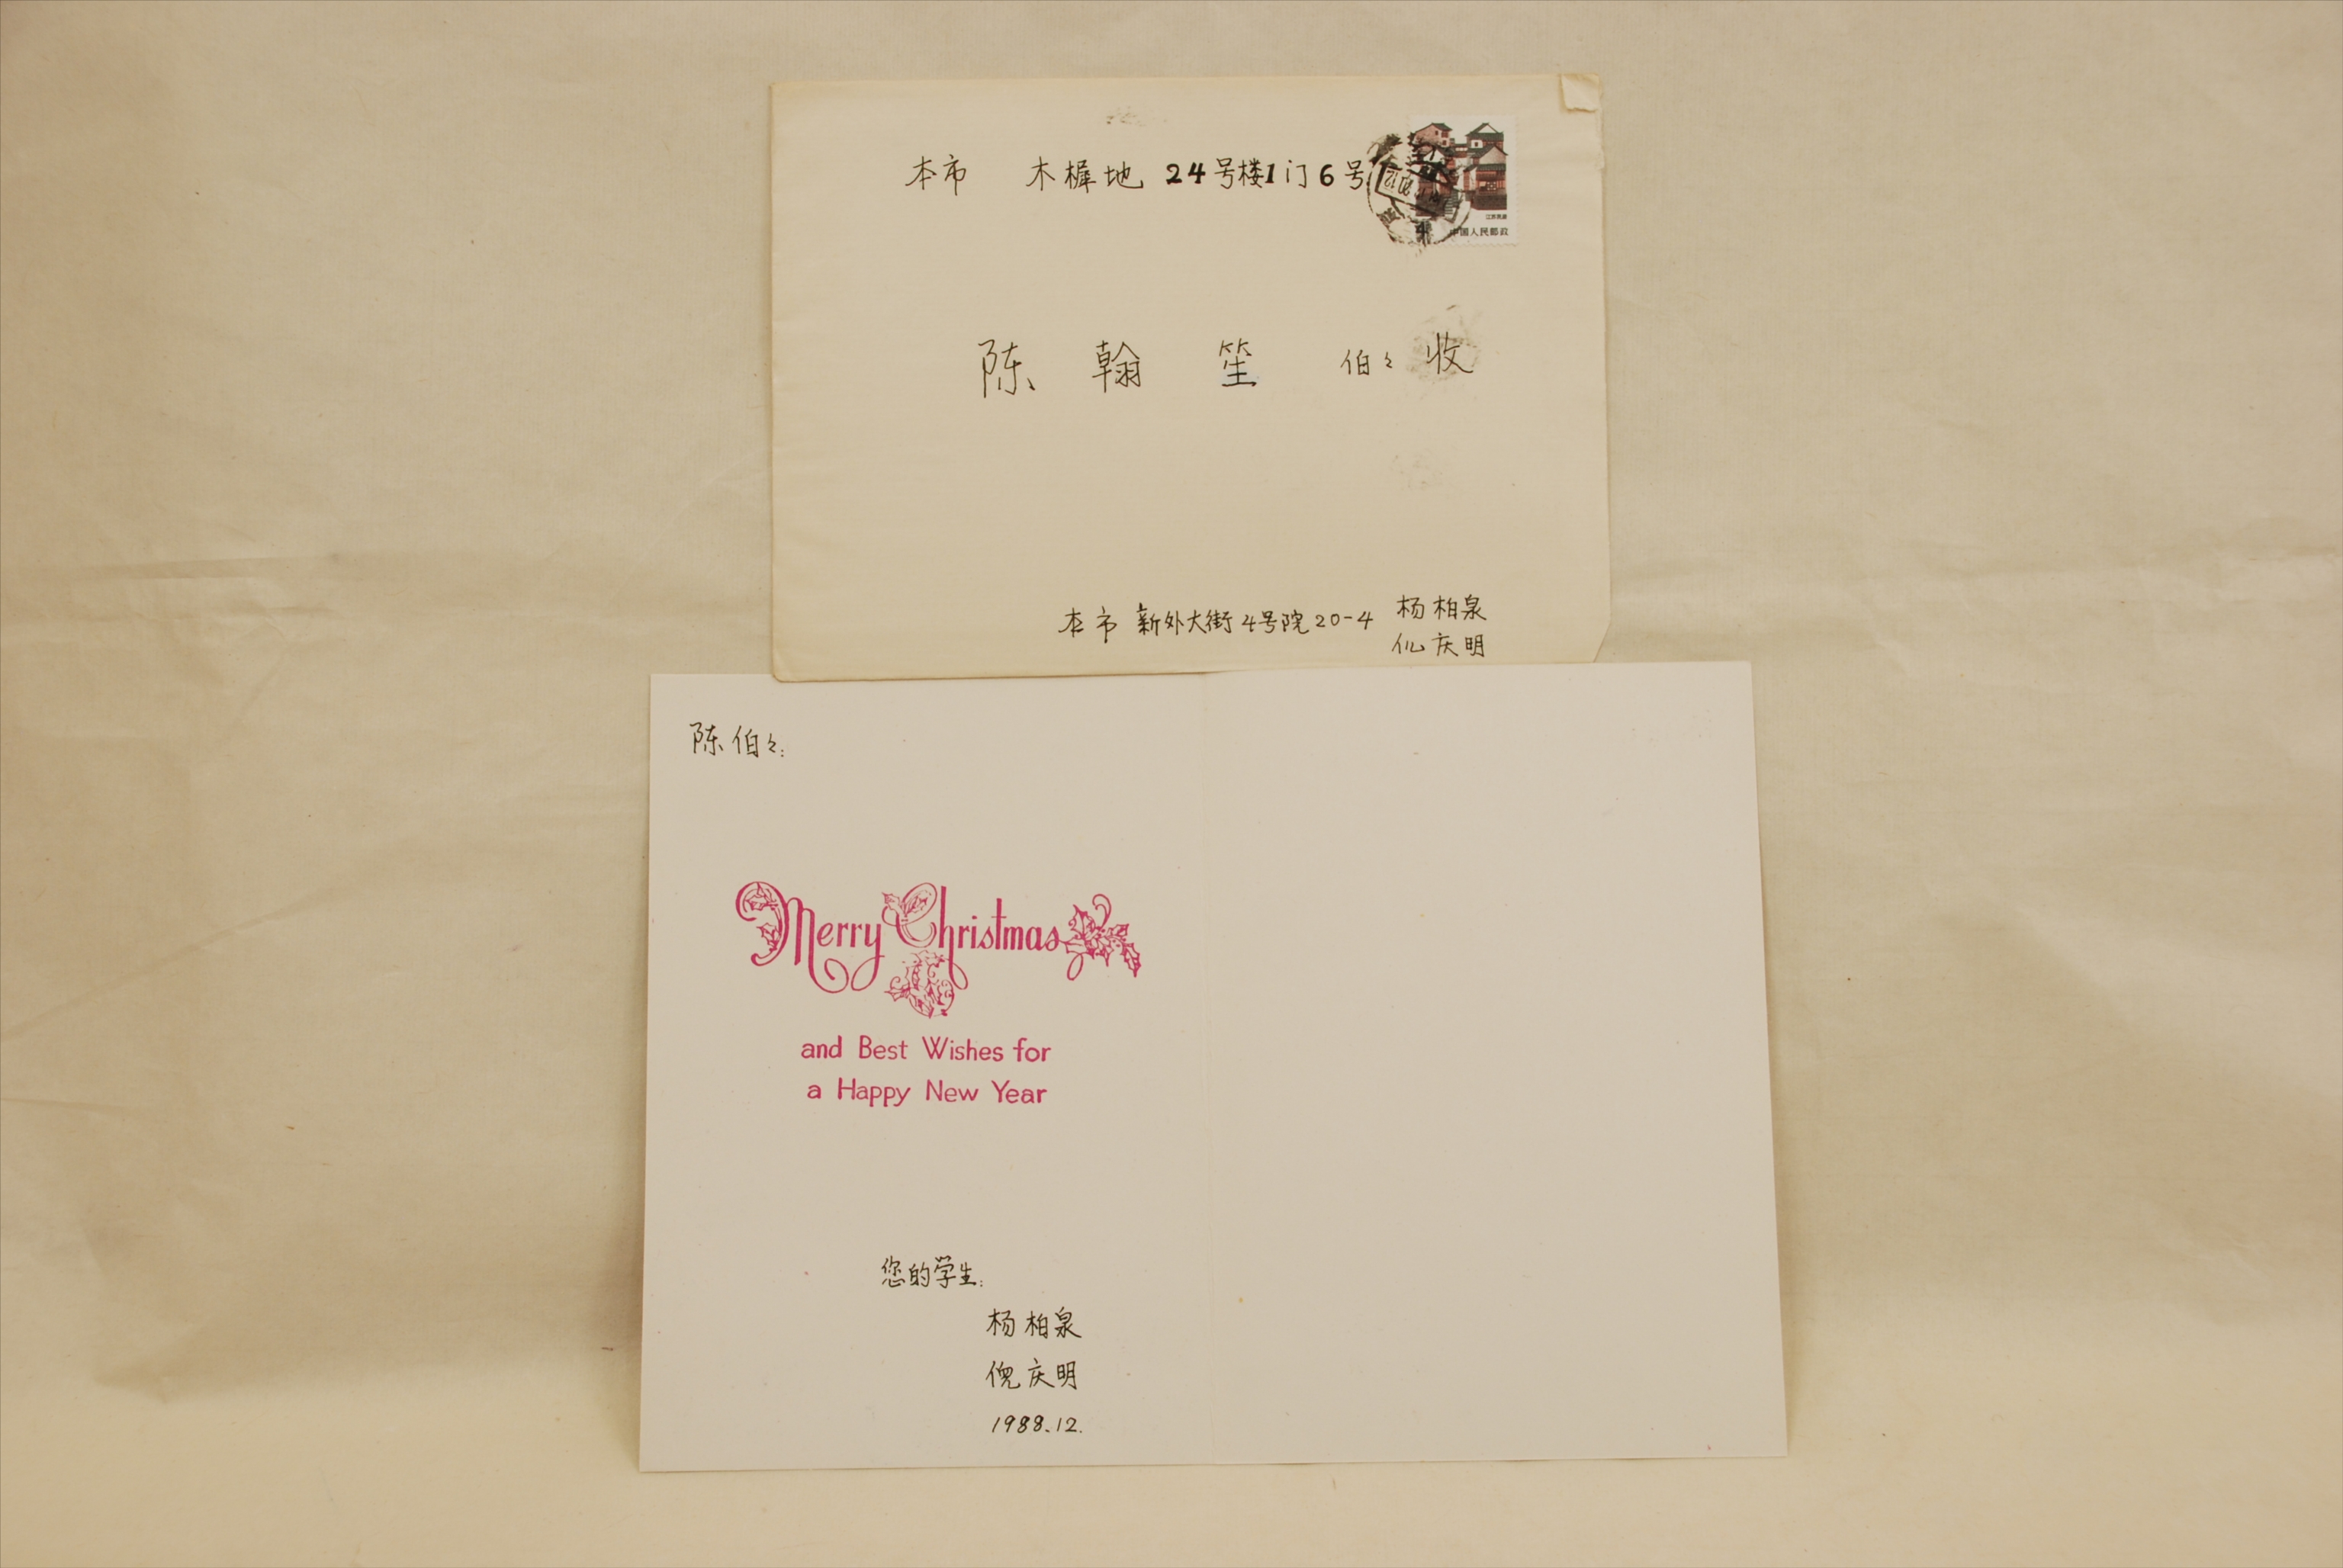 本市 木樨地 24号楼1门6号
江苏民居
中国人民邮政
陈翰笙 伯々 收
本市 新外大街4号院20-4 杨柏泉
仉庆明
陈伯々:
Merry Christmas
and Best Wishes for
a Happy New Year
您的学生:
杨柏泉
倪庆明
1988.12.